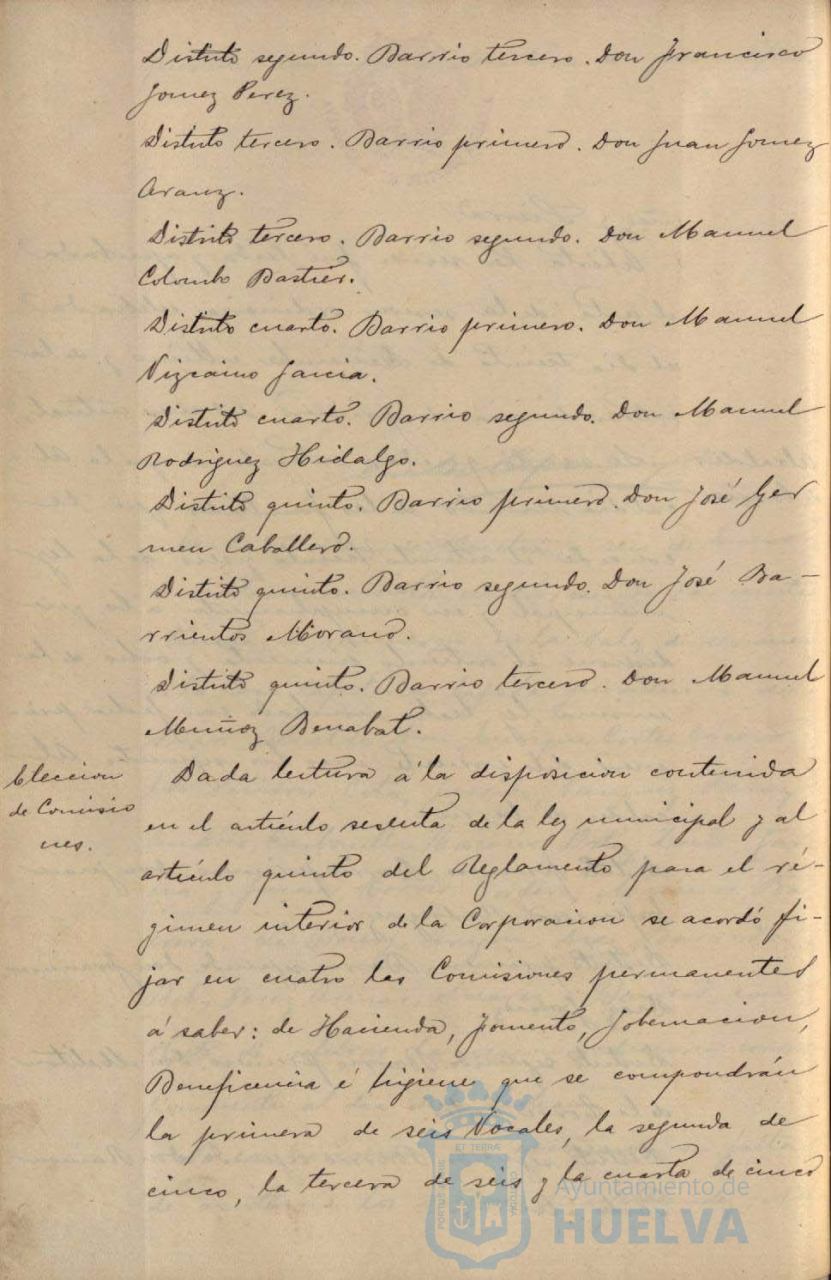 Distrito segundo. Barrio tercero. Don Francisco
Gomez Perez.
Distrito tercero. Barrio primero. Don Juan Gomez
Aranz.
Distrito tercero. Barrio segundo. Don Manuel
Colombo Bastier.
Distrito cuarto. Barrio primero. Don Manuel
Vizcaino Garcia.
Distrito cuarto. Barrio segundo. Don Manuel
Rodriguez Hidalgo.
Distrito quinto. Barrio primero. Don José Ger
men Caballero.
Distrito quinto. Barrio segundo. Don José Ba-
rrientos Morano.
Distrito quinto. Barrio tercero. Don Manuel
Muñoz Benabat.
Eleccion
de Comisio
nes.
Dada lectura á la disposicion contenida
en el artículo sesenta de la ley municipal y al
artículo quinto del Reglamento para el ré-
gimen interior de la Corporacion se acordó fi-
jar en cuatro las Comisiones permanentes
á saber: de Hacienda, Fomento, Gobernacion,
Beneficencia é higiene que se compondrán
la primera de seis Vocales, la segunda de
cinco, la tercera de seis y la cuarta de cinco
Ayuntamiento de
HUELVA